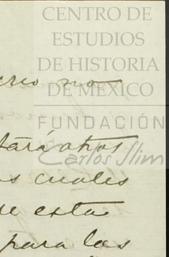 CENTRO DE
ESTUDIOS
DE HISTORIA
DE MEXICO
no
FUNDACIÓN
Carlos Slim
cuales
de esta
para las